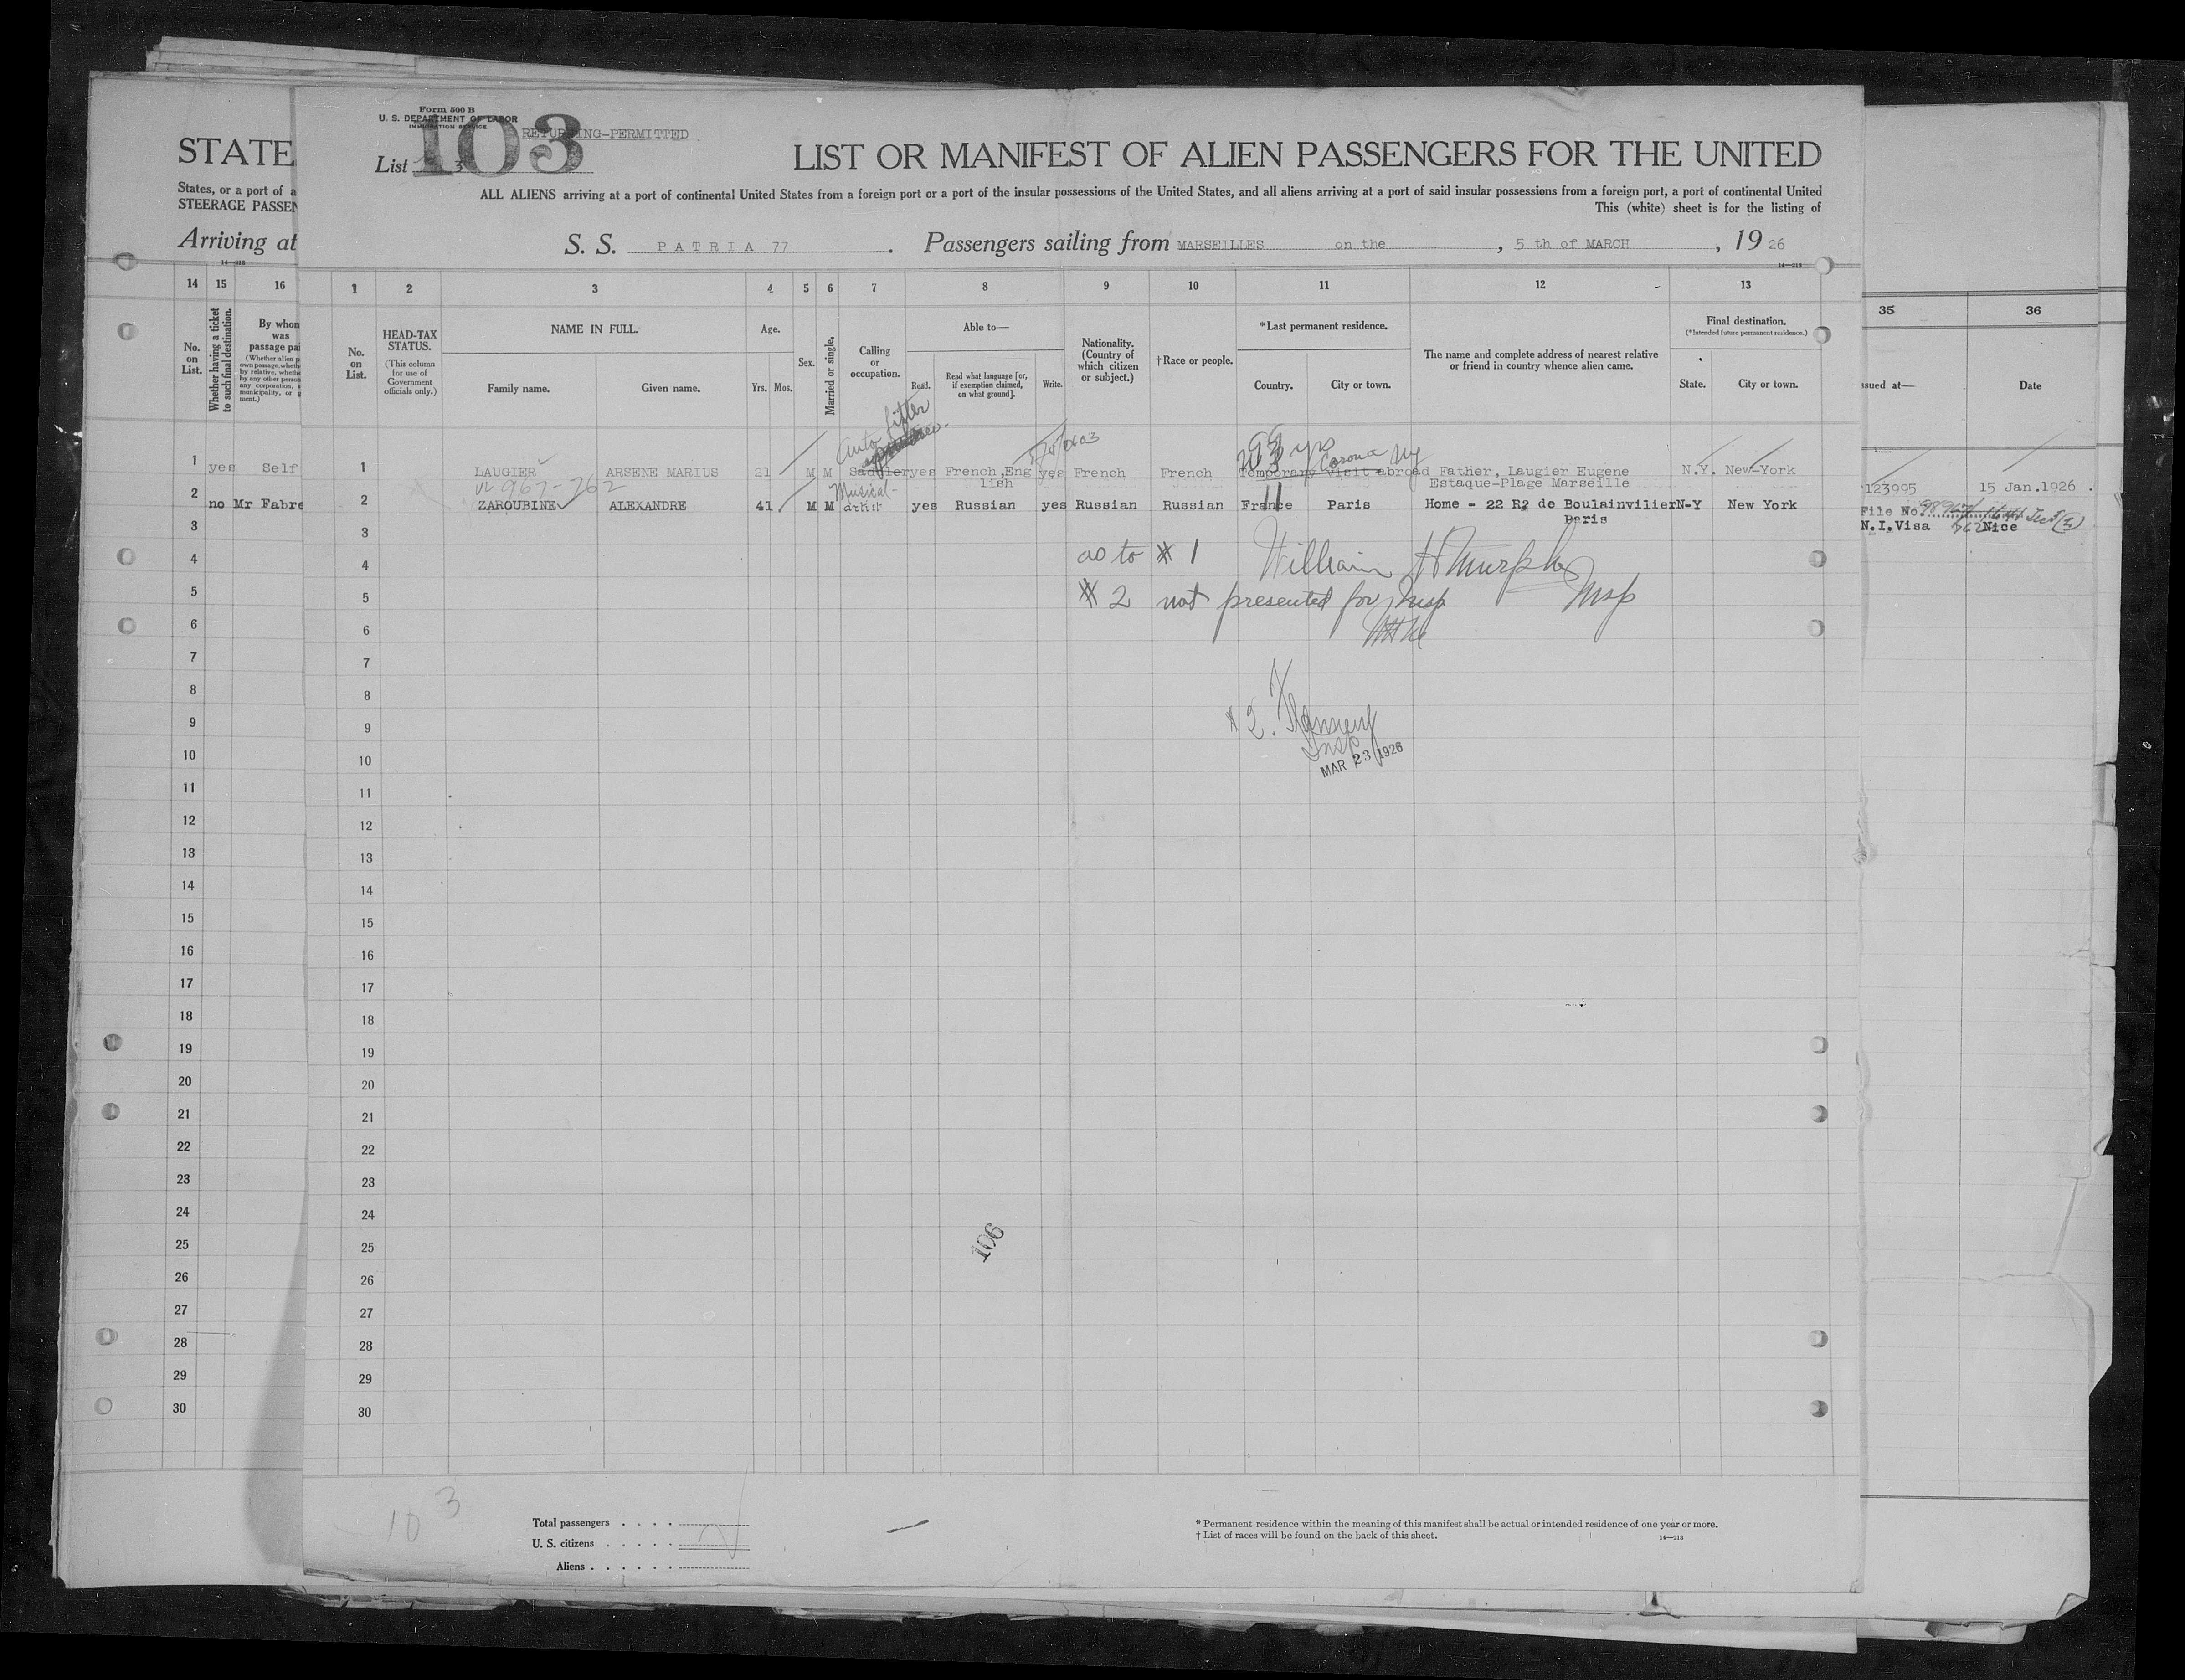 Form 500 B
U. S. DEPARTMENT OF LABOR
IMMIGRATION SERVICE
RETURNING-PERMITTED
List 103
LIST OR MANIFEST OF ALIEN PASSENGERS FOR THE UNITED
ALL ALIENS arriving at a port of continental United States from a foreign port or a port of the insular possessions of the United States, and all aliens arriving at a port of said insular possessions from a foreign port, a port of continental United
This (white) sheet is for the listing of
S. S. PATRIA 77. Passengers sailing from MARSEILLES on the, 5 th of MARCH, 1926
14—213
STATE
States, or a port of a
STEERAGE PASSEN
Arriving at
14—213
14 15 16
No. on List.
Whether having a ticket to such final destination.
By whom was passage pai
1 2 3 4 5 6 7 8 9 10 11 12 13
No. on List.
HEAD-TAX STATUS.
(This column for use of Government officials only.)
NAME IN FULL.
Family name. Given name.
Age.
Yrs. Mos.
Sex.
Married or single.
Calling or occupation.
Able to—
Read. Read what language [or, if exemption claimed, on what ground]. Write.
Nationality. (Country of which citizen or subject.)
†Race or people.
*Last permanent residence.
Country. City or town.
The name and complete address of nearest relative or friend in country whence alien came.
Final destination.
(*Intended future permanent residence.)
State. City or town.
35 36
ssued at— Date
Auto fitter
3 yrs Corona Ny
1 yes Self
1 LAUGIER ARSENE MARIUS 21 M M Saddler yes French,Eng lish yes French French Temporary visit abroad Father, Laugier Eugene Estaque-Plage Marseille N.Y. New-York
123995 15 Jan.1926.
967-262
Musical
2 no Mr Fabre
2 ZAROUBINE ALEXANDRE 41 M M artist yes Russian yes Russian Russian France Paris Home - 22 Re de Boulainvilier Paris N-Y New York
File No.
N.I.Visa Nice
3
4
5
6
7
8
9
10
11
12
13
14
15
16
17
18
19
20
21
22
23
24
25
26
27
28
29
30
as to # 1 William H Murphy Insp
# 2 not presented for Insp
# 2.
Insp
MAR 23 1926
3
4
5
6
7
8
9
10
11
12
13
14
15
16
17
18
19
20
21
22
23
24
25
26
27
28
29
30
106
10 3
Total passengers
U. S. citizens
Aliens
* Permanent residence within the meaning of this manifest shall be actual or intended residence of one year or more.
† List of races will be found on the back of this sheet.
14—213